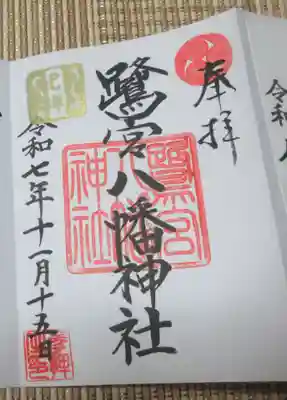 奉拝
鷺宮八幡神社
鷺宮八幡神社
令和七年十一月十五日
令和